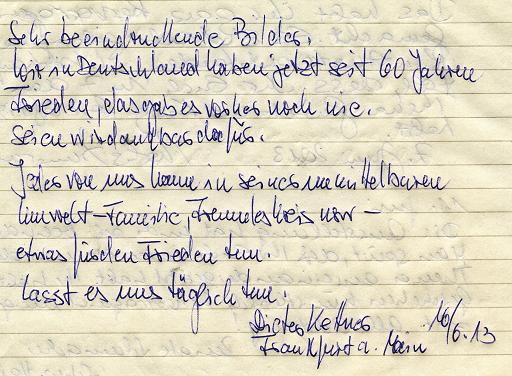 Sehr beeindruckende Bilder.
Wir in Deutschland haben jetzt seit 60 Jahren
Frieden, das gab es vorher noch nie.
Seien wir dankbar dafür.
Jeder von uns kann in seiner unmittelbaren
Umwelt – Familie, Freundeskreis usw –
etwas für den Frieden tun.
Lasst es uns täglich tun.
Dieter Kettner 10/6.13
Frankfurt a. Main